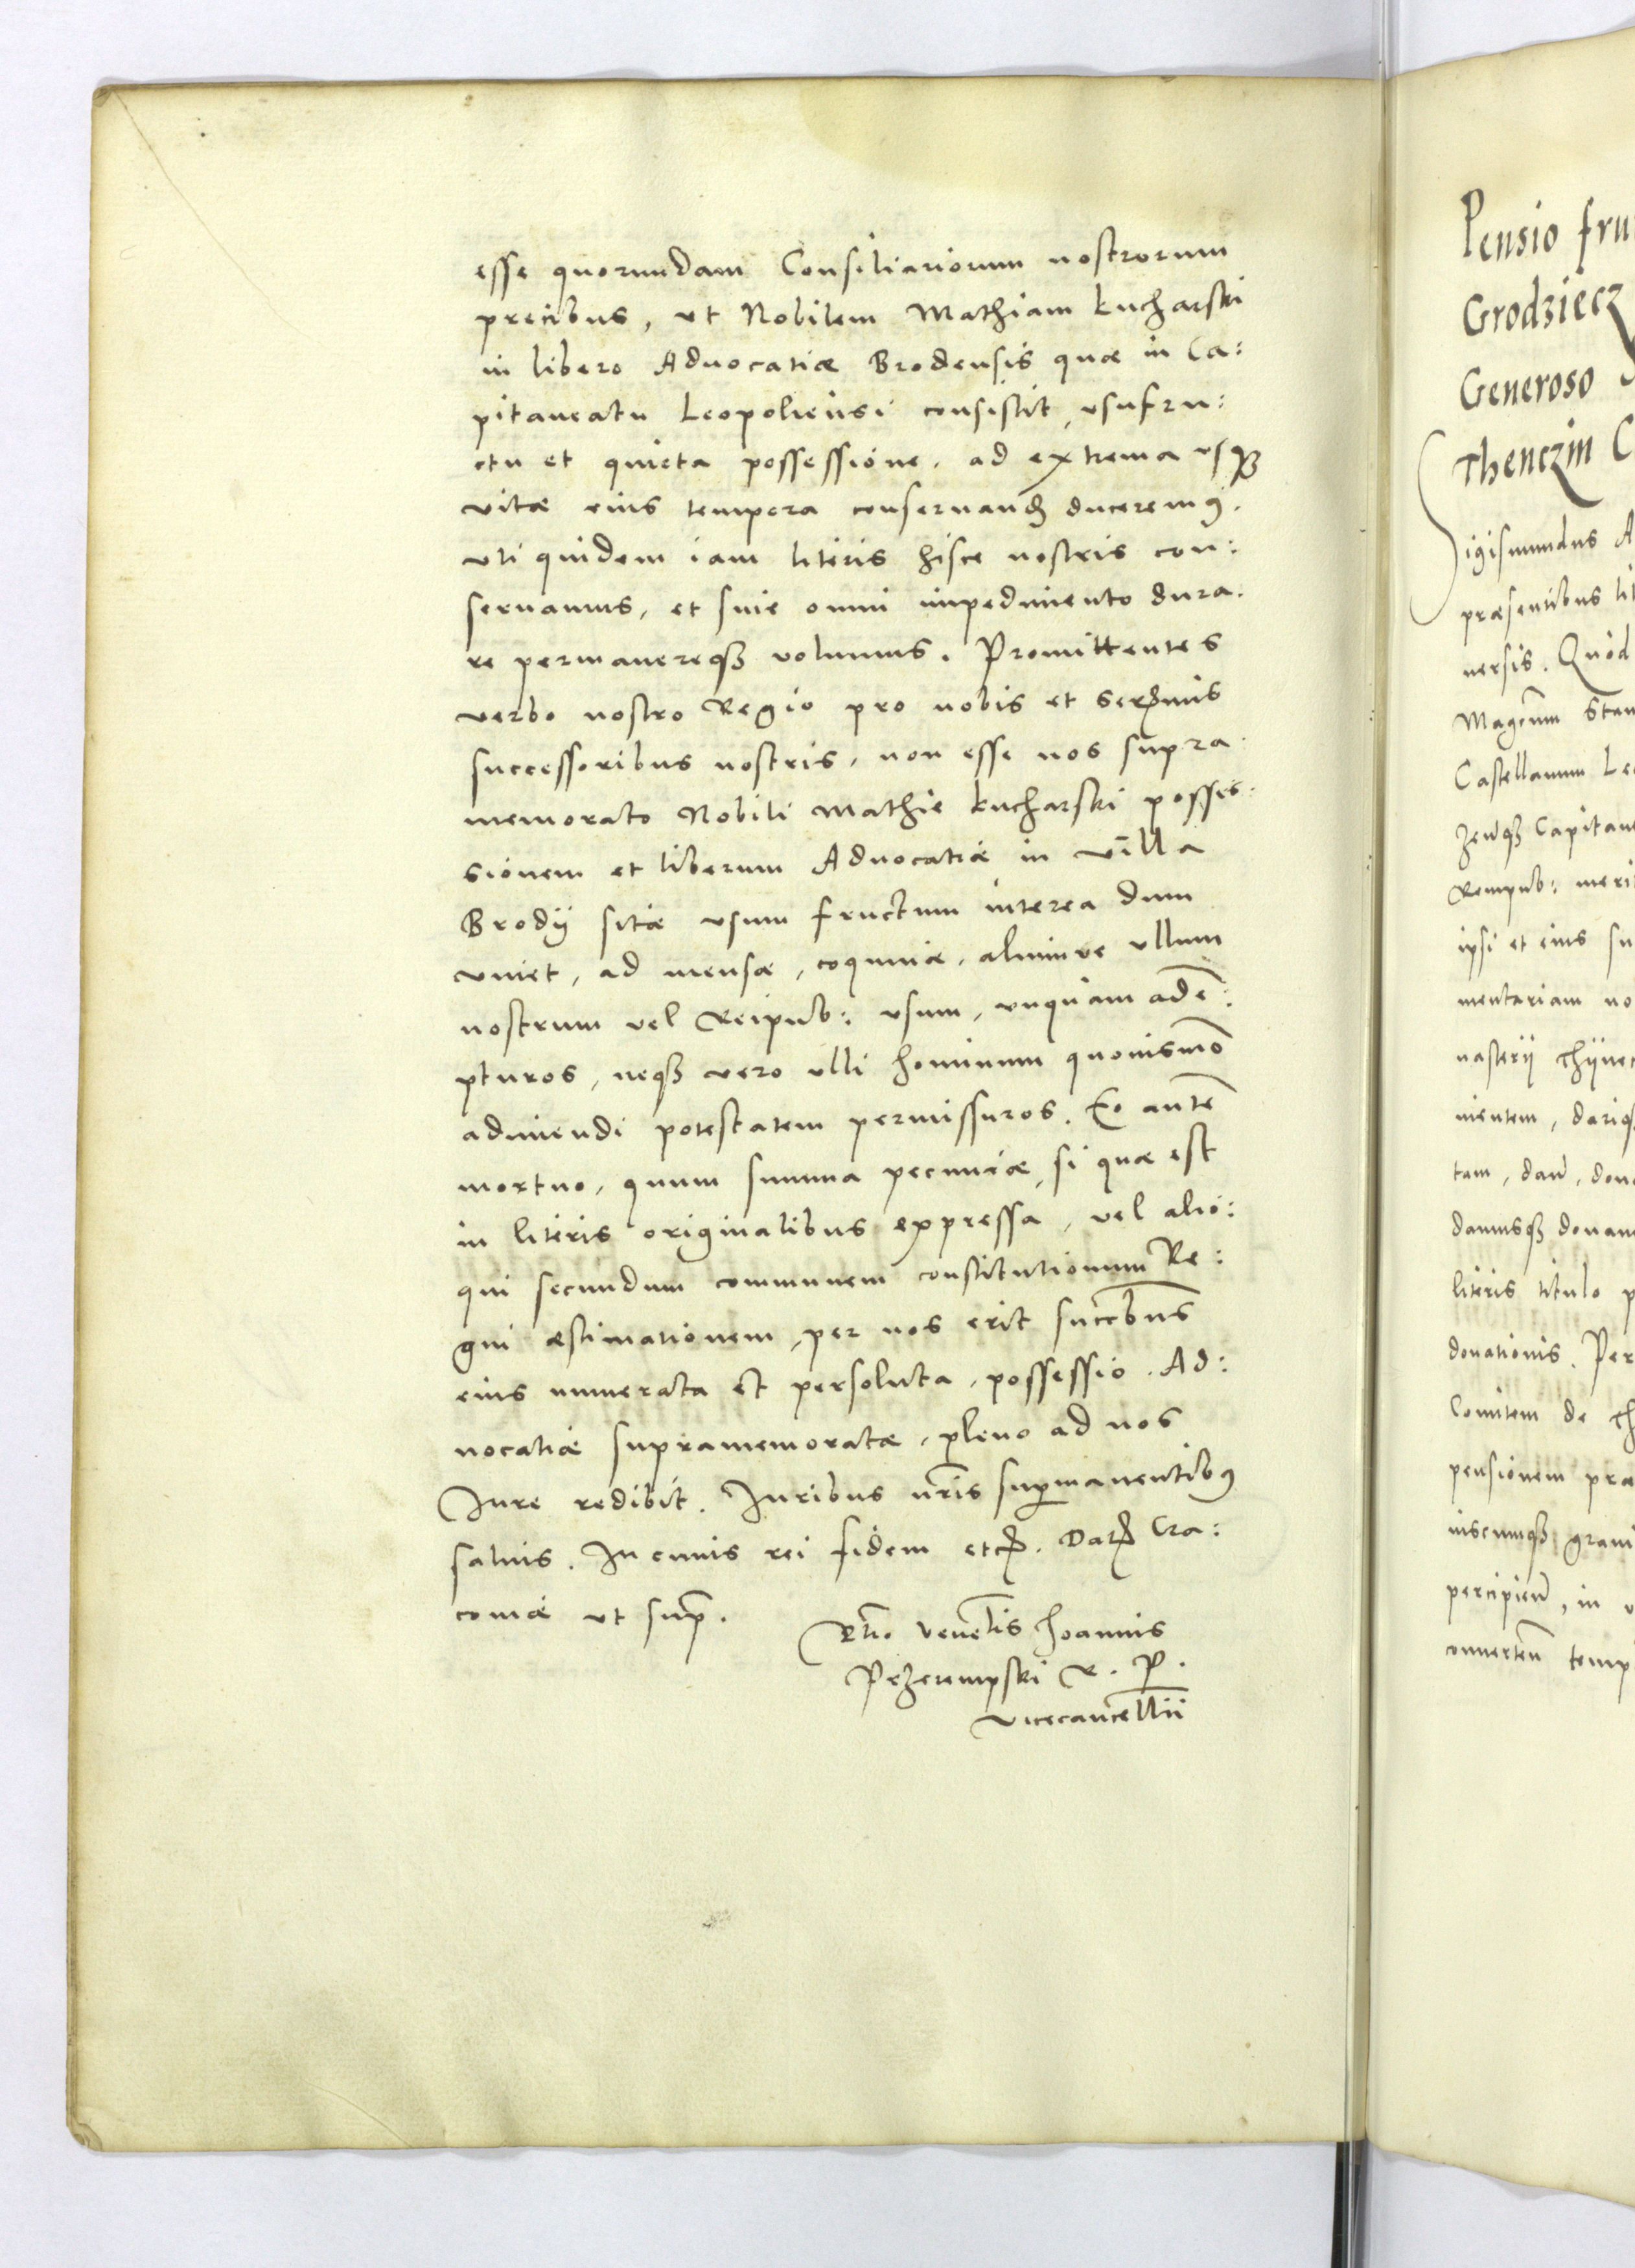 esse quorundam Consiliariorum nostrorum
precibus, ut Nobilem Mathiam Kucharski
in libero Aduocatiæ Brodensis quæ in Ca:
pitaneatu Leopoliensi consistit, usufru:
ctu et quieta possessione, ad extrema usqꝫ
vitæ eius tempora conseruandꝭ duceremꝰ.
uti quidem iam literis hisce nostris con:
seruamus, et sine omni impedimento dura:
re permanereqꝫ volumus. Promittentes
verbo nostro Regio pro nobis et Serꝭmis
successoribus nostris, non esse nos supra
memorato Nobili Mathie Kucharski posses:
sionem et liberum Aduocatiæ in villa
Brodÿ sitæ usum fructum interea dum
viuet, ad mensæ, coquinæ, aliumve ullum
nostrum vel Reipub: usum, unquam adē:
pturos, neqꝫ vero ulli hominum quouismō
adimendi potestatem permissuros. Eo autē
mortuo, quum summa pecuniæ, si quæ est
in literis originalibus expressa, vel alio:
qui secundum communem constitutionum Re:
gni æstimationem, per nos erit succ̄bus
eius numerata et persoluta, possessio Ad:
uocatiæ supramemoratæ, pleno ad nos
Jure redibit. Juribus nr̄is sup̄manentibꝰ
saluis. In cuius rei fidem etcꝭ. Datꝭ Cra:
couiæ ut sup̄.
Rtio. Venētis Joannis
Przerempski R. P.
Vicecancellīi
Pensio fru
Grodziecz
Generoso
Thenczin C
Sigismundus A
præsentibus lit
uersis. Quod
Magcūm Stan
Castellanum Le
Capitan
Rempub: meri
ipsi et eius su
mentariam no
nasterÿ Thÿnec
nientem, dariqꝫ
tam, dan̄, don
damusqꝫ donam
literis titulo p
donationis. Per
Comitem de Th
pensionem præ
uiscumqꝫ gran
percipien̄, in u
conuerten̄ temp